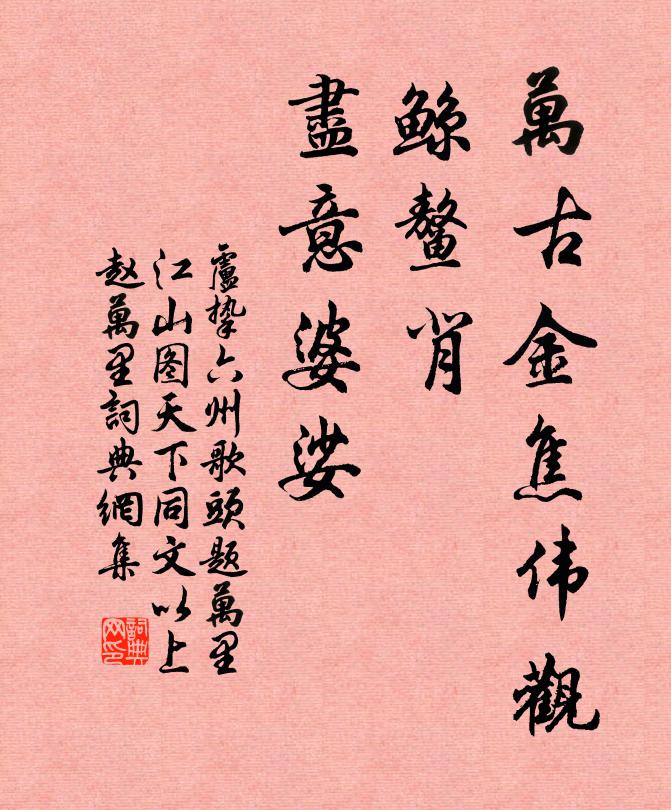 萬古金焦伟觀
鲸鳌背
盡意婆娑
盧摯六州歌頭題萬里
江山图天下同文以上
赵萬里詞典網集
詞典网印